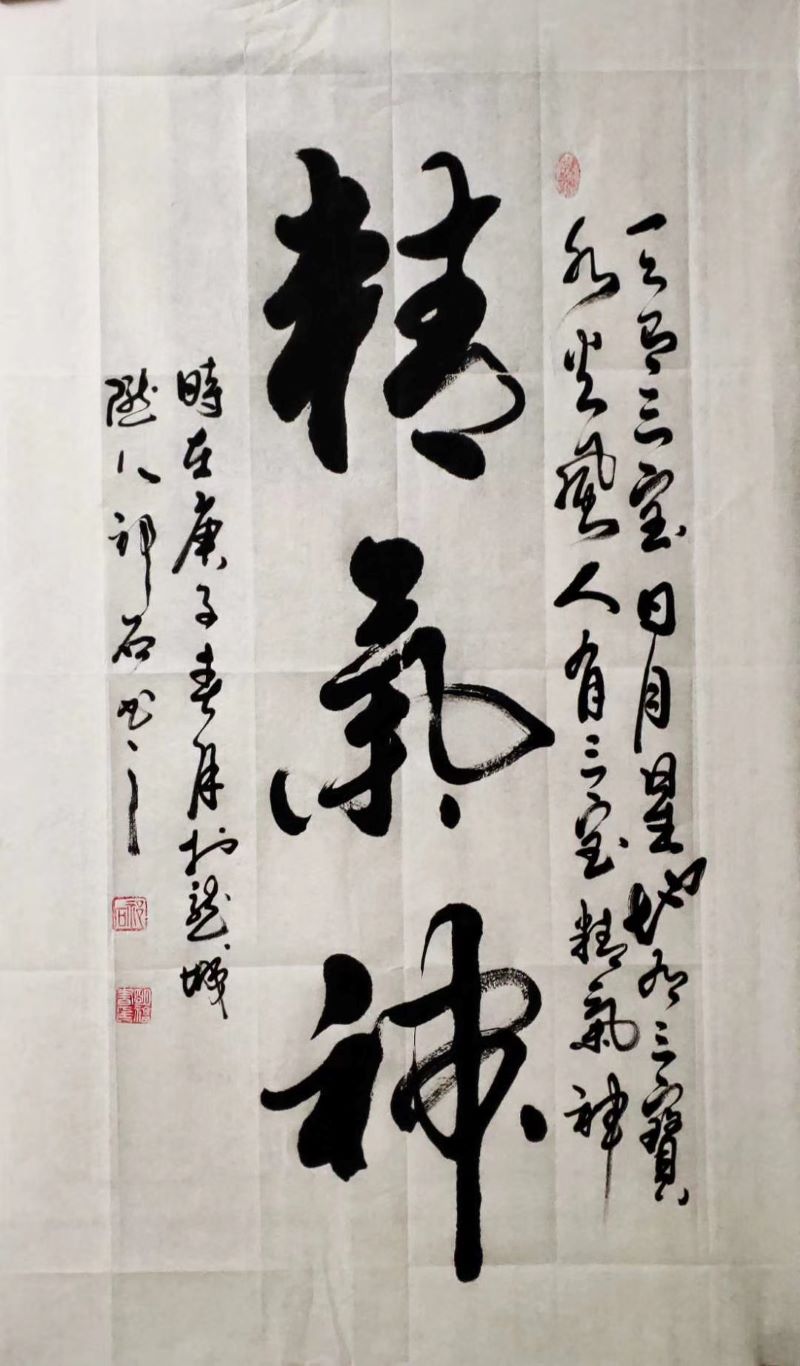 天有三宝日月星地有三寶
水火風人有三宝精氣神
精氣神
時在庚子春月於龍城
隴人祁石书之